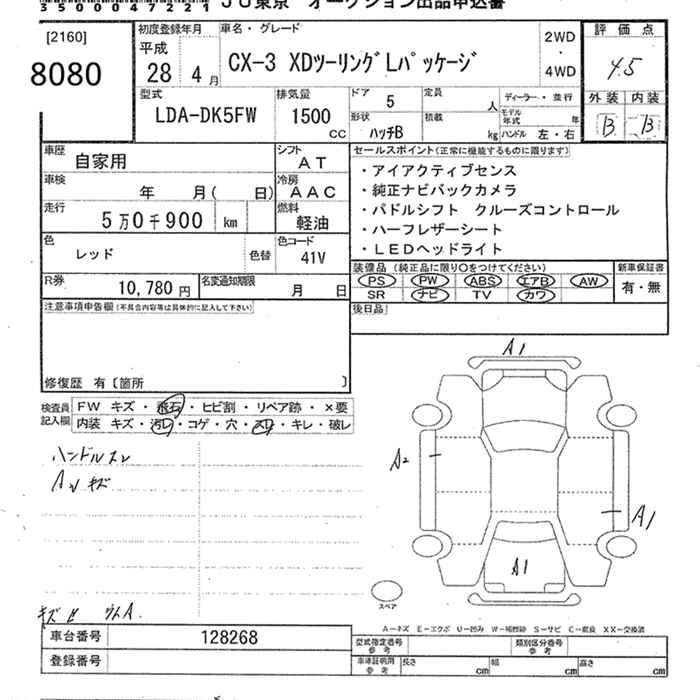 350004７221 JU東京 オークション出品申込書
[2160]
8080
初度登録年月
平成
28年 4月
車名・グレード
CX-3 XDツーリングLパッケージ
2WD
・
4WD
評価点
4.5
外装 内装
B B
型式
LDA-DK5FW
排気量
1500
cc
ドア 5
形状 ハッチB
定員 人
積載 kg
ディーラー・並行
モデル年式 年
ハンドル 左・右
車歴 自家用
シフト AT
車検 年 月( 日)
冷房 AAC
走行 5万0千900 km
燃料 軽油
色 レッド 色替
色コード 41V
R券 10,780円
名変通知期限 月 日
セールスポイント(正常に機能するものに限ります)
・アイアクティブセンス
・純正ナビバックカメラ
・パドルシフト クルーズコントロール
・ハーフレザーシート
・LEDヘッドライト
装備品(純正品に限り○をつけてください)
新車保証書
PS PW ABS エアB AW
SR ナビ TV カワ
有・無
後日品
注意事項申告欄(不具合内容等は具体的に記入して下さい)
修復歴 有〔箇所 〕
検査員記入欄
FW キズ・飛石・ヒビ割・リペア跡・×要
内装 キズ・汚レ・コゲ・穴・スリ・キレ・破レ
ハンドルスレ
AWキズ
A1
A2
A1
A1
スペア
A-キズ E-エクボ U-凹み W-補修跡 S-サビ C-腐食 XX-交換済
車台番号 128268
登録番号
型式指定番号 参考
類別区分番号 参考
車庫証明用 参考
長さ cm
幅 cm
高さ cm